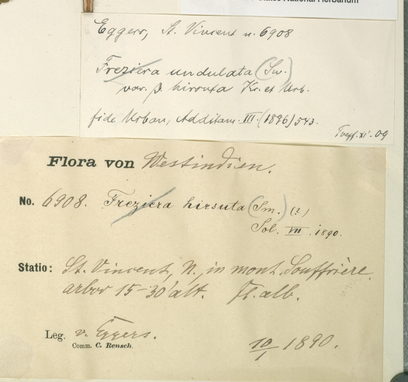 National Herbarium
Eggers, St. Vincent n. 6908
Freziera undulata (Sw.)
var. β hirsuta Kr. et Urb.
fide Urban, Additam. III. (1896) 543.
09
Flora von Westindien.
No. 6908. Freziera hirsuta (Sm.) (?)
VII. 1890.
Statio: St. Vincent, N., in mont. Souffrière.
arbor 15-30' alt. Fl. alb.
Leg. v. Eggers.
Comm. C. Rensch.
10/1 1890.